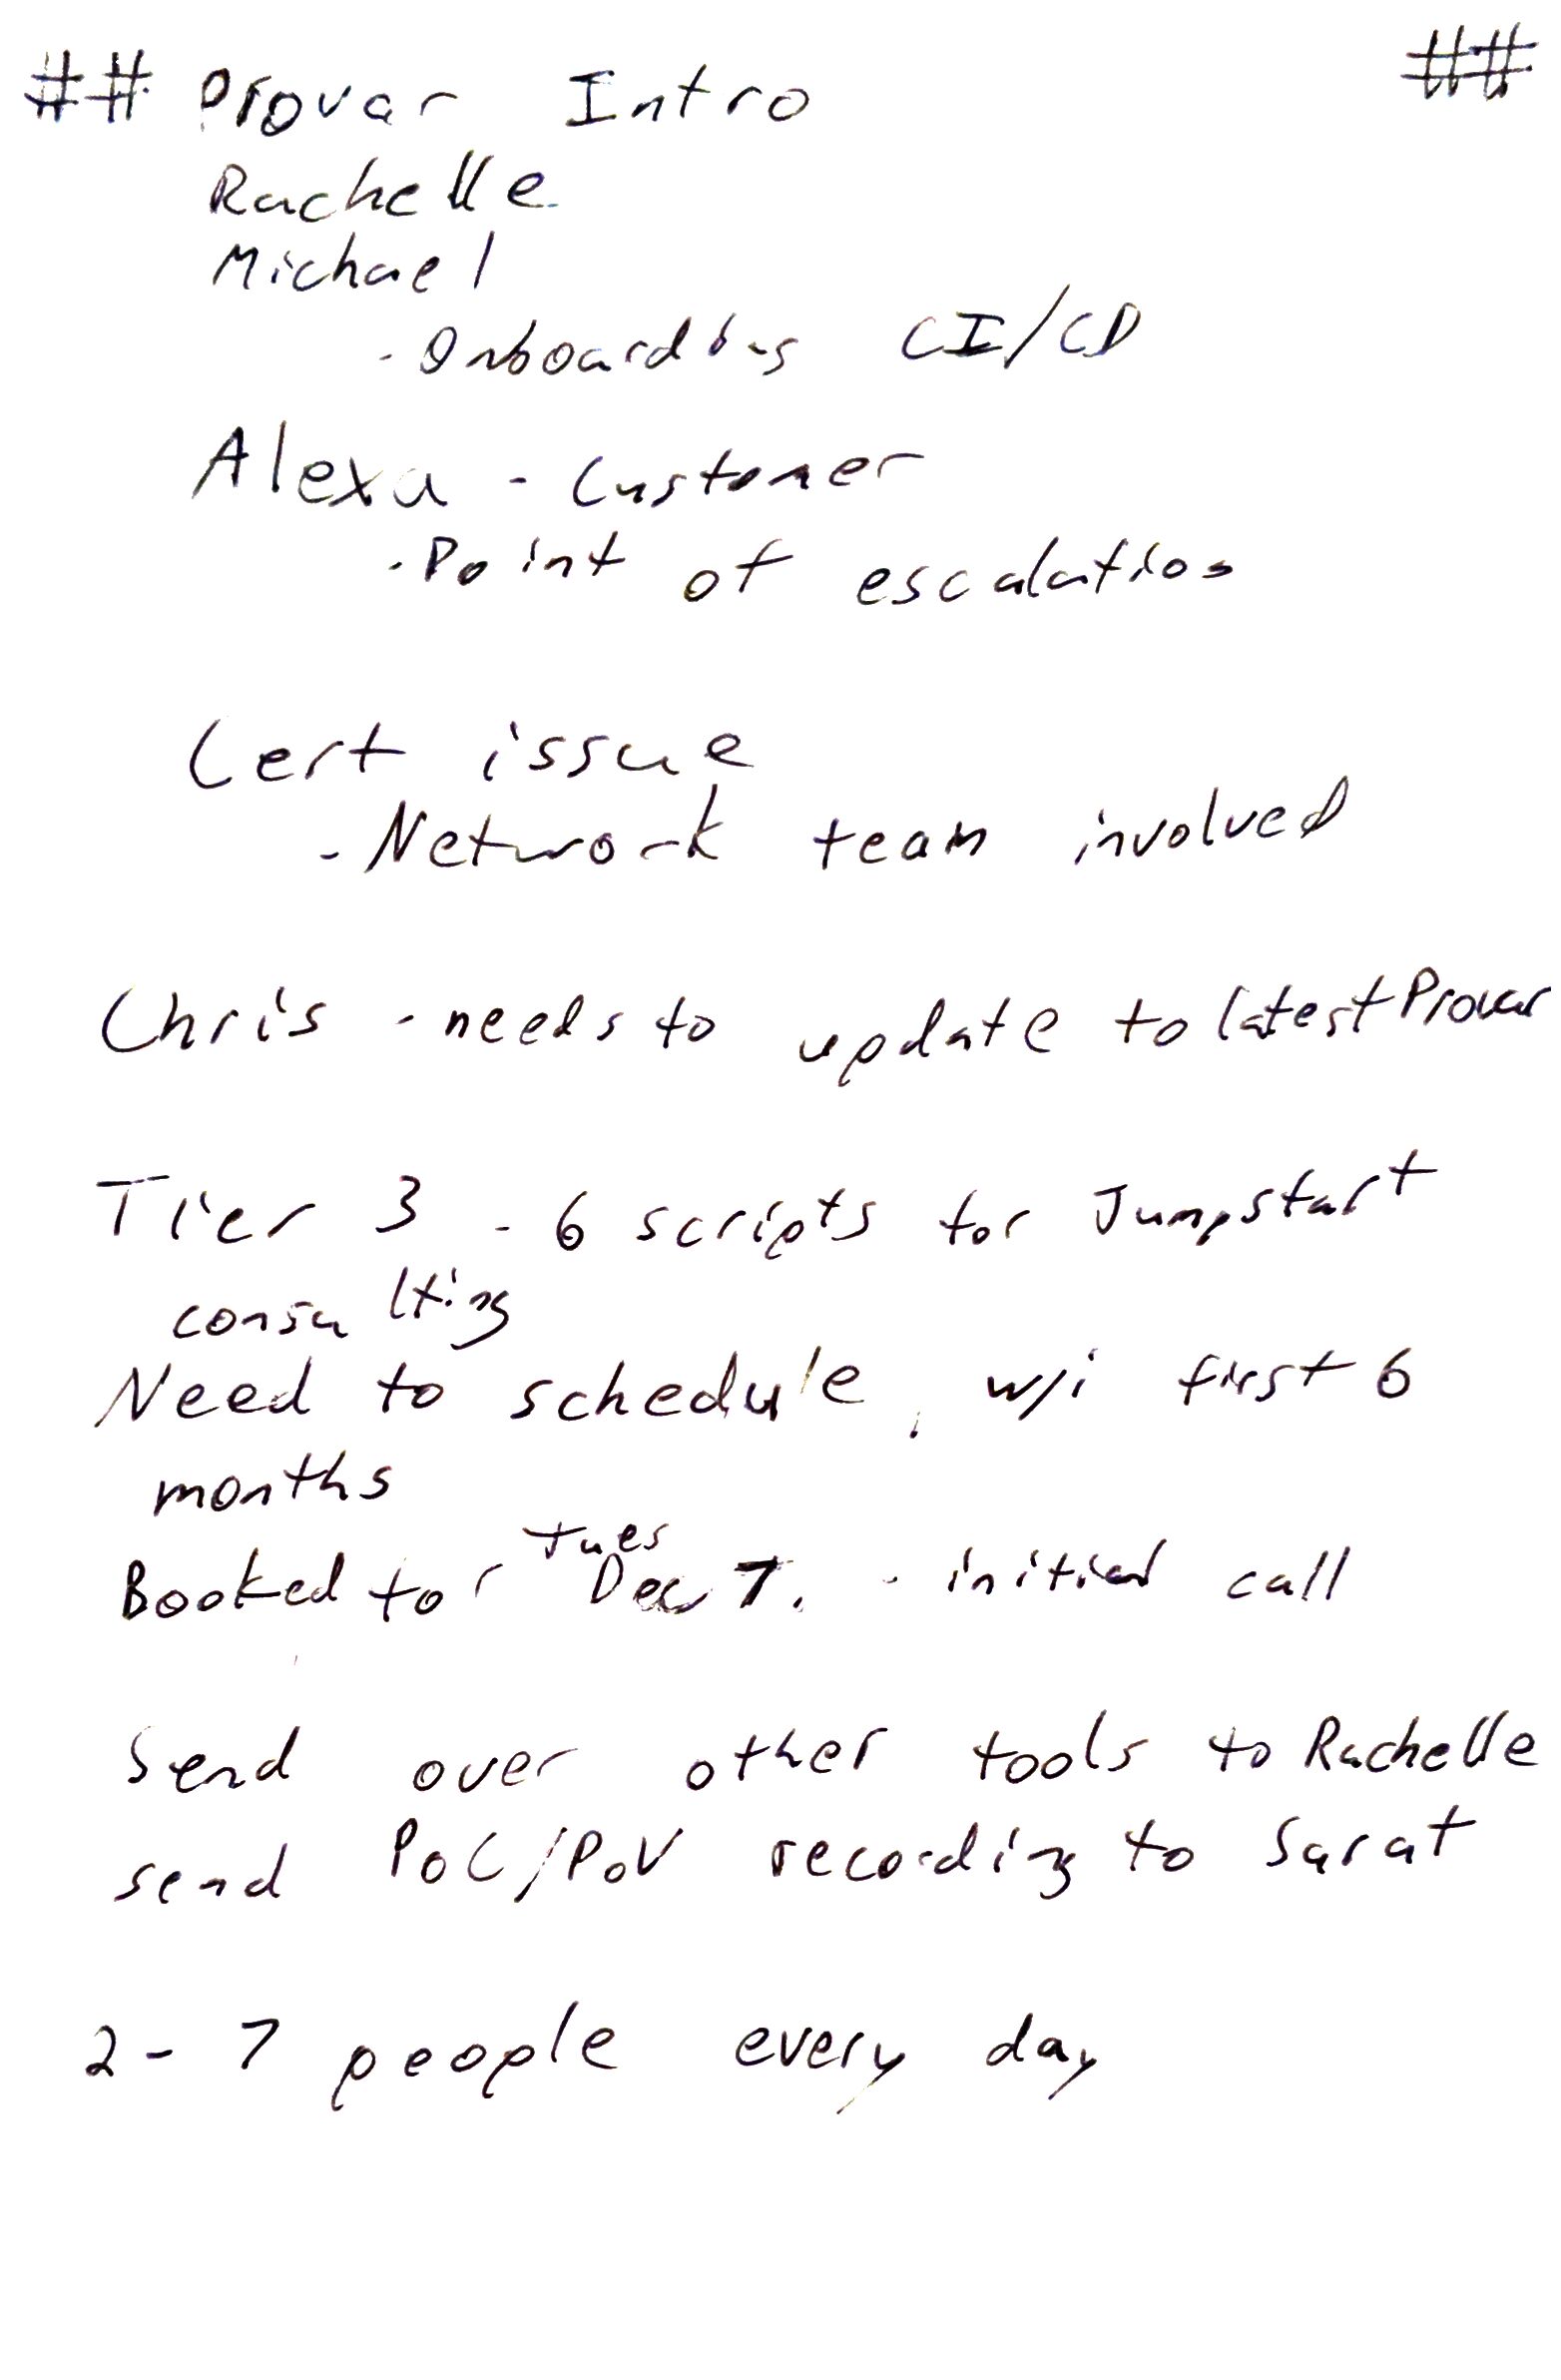 ## Provar Intro ##
Rachelle
Michael
- Onboarding CI/CD
Alexa - Customer
- Point of escalation
Cert issue
- Network team involved
Chris - needs to update to latest Provar
Tier 3 - 6 scripts for Jumpstart
consulting
Need to schedule, w/i first 6
months
Booked for Tues Dec 7. - initial call
Send over other tools to Rachelle
send PoC/PoV recording to Sarat
2 - 7 people every day